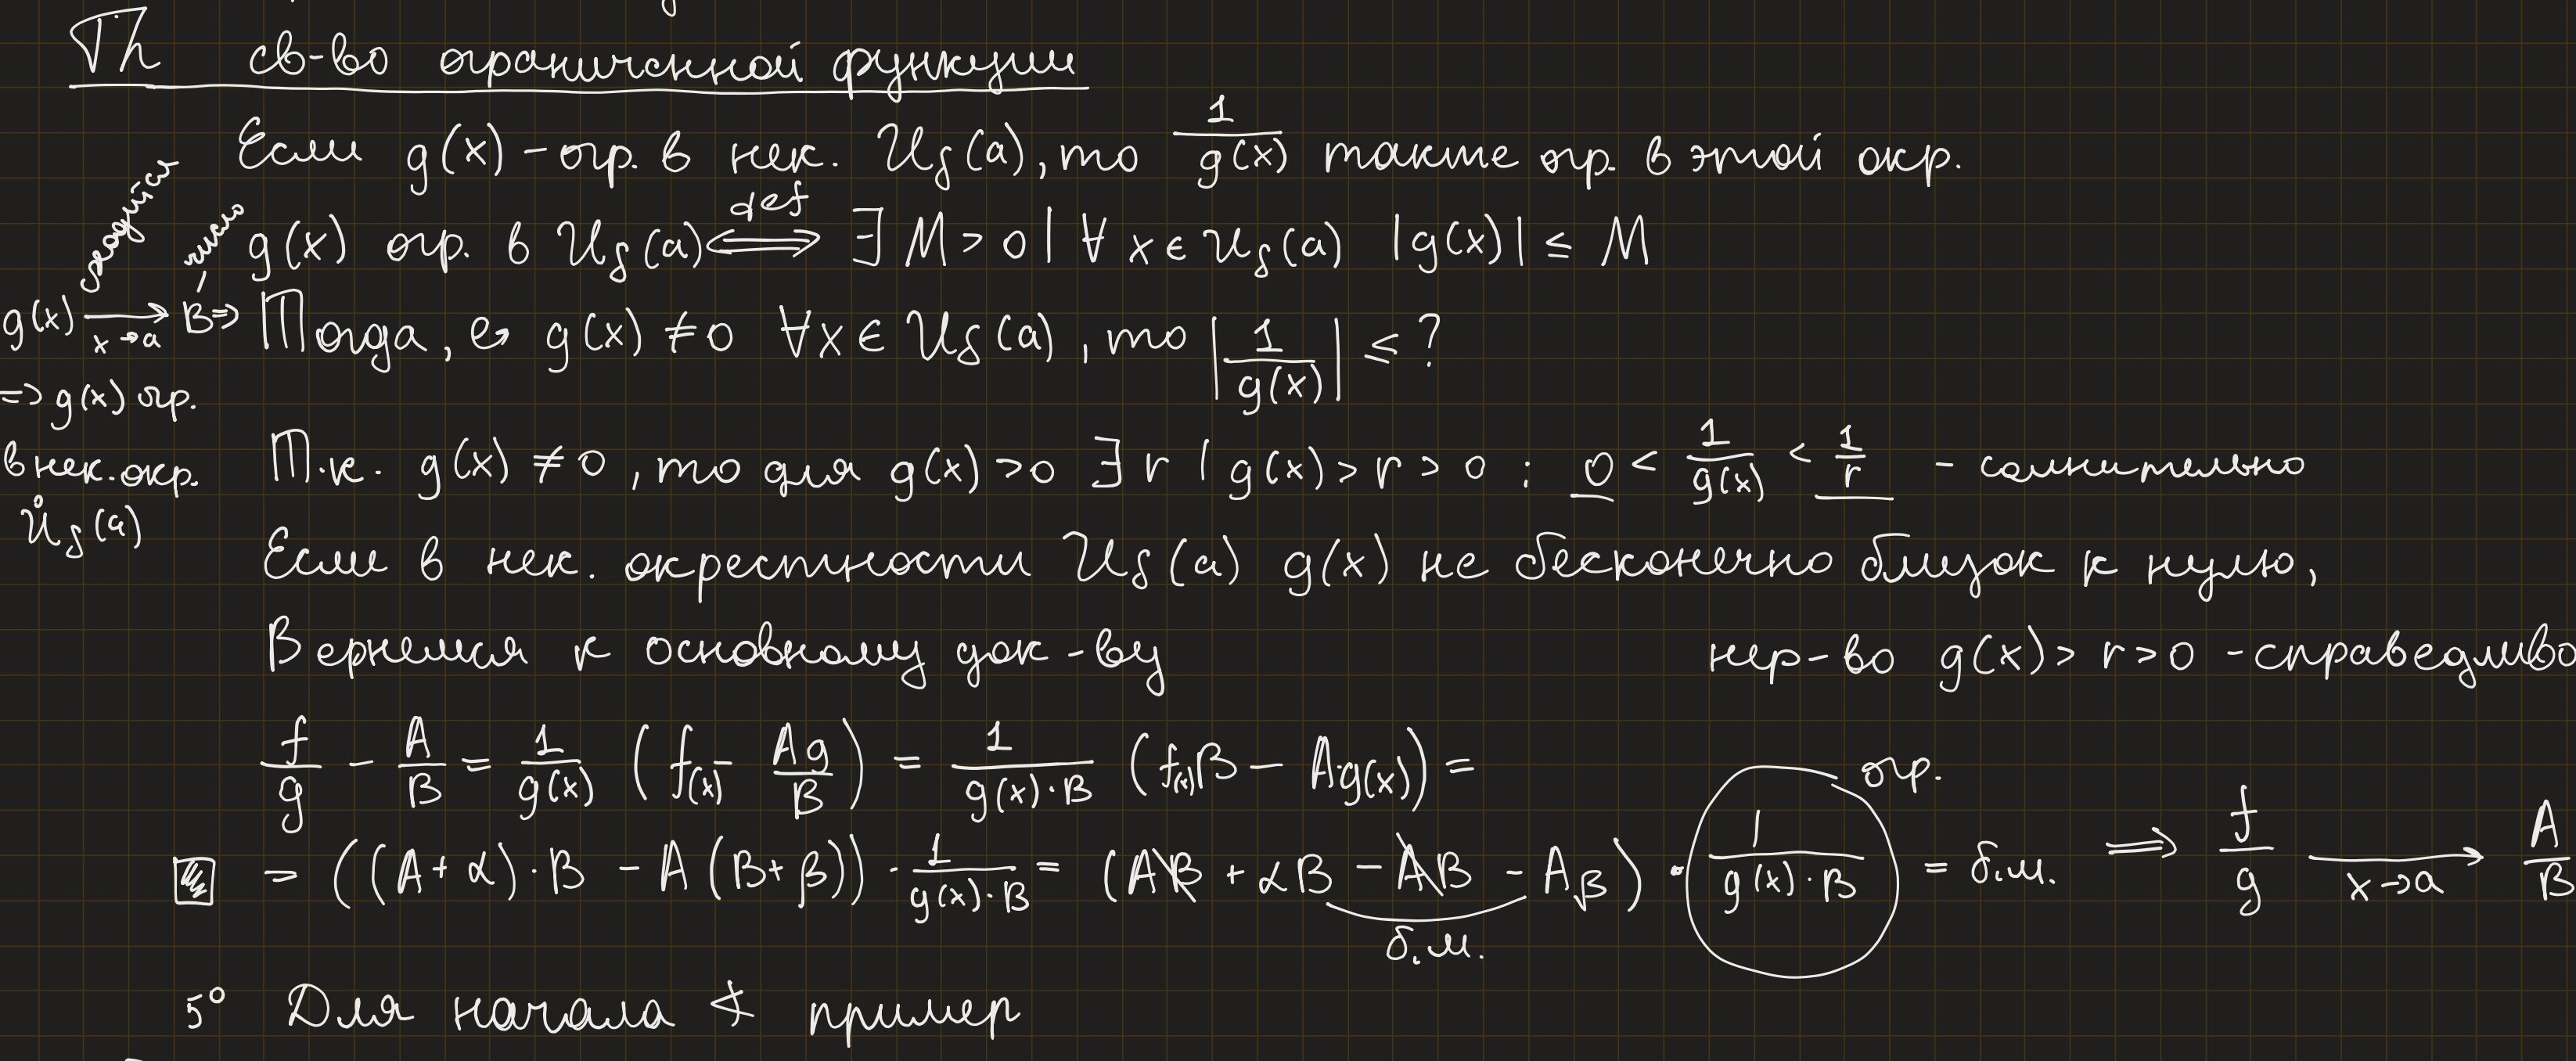 Th св-во ограниченной функции
Если g(x) - огр. в нек. U_δ(a), то 1/g(x) также огр. в этой окр.
g(x) огр. в U_δ(a) <=def=> ∃ M > 0 | ∀ x ∈ U_δ(a) |g(x)| ≤ M
сходится
число
g(x) →_{x→a} B =>
=> g(x) огр.
в нек. окр.
Ů_δ(a)
Тогда, g(x) ≠ 0 ∀x ∈ U_δ(a), то |1/g(x)| ≤ ?
Т.к. g(x) ≠ 0, то для g(x) > 0 ∃ r | g(x) > r > 0 : 0 < 1/g(x) < 1/r - сомнительно
Если в нек. окрестности U_δ(a) g(x) не бесконечно близок к нулю,
нер-во g(x) > r > 0 - справедливо
Вернемся к основному док-ву
f/g - A/B = 1/g(x) (f(x) - Ag/B) = 1/(g(x)·B) (f(x)B - A·g(x)) =
= ((A + α)·B - A(B + β)) · 1/(g(x)·B) = (AB + αB - AB - Aβ) · 1/(g(x)·B) = б.м. ⟹ f/g →_{x→a} A/B
огр.
б.м.
5° Для начала ∢ пример